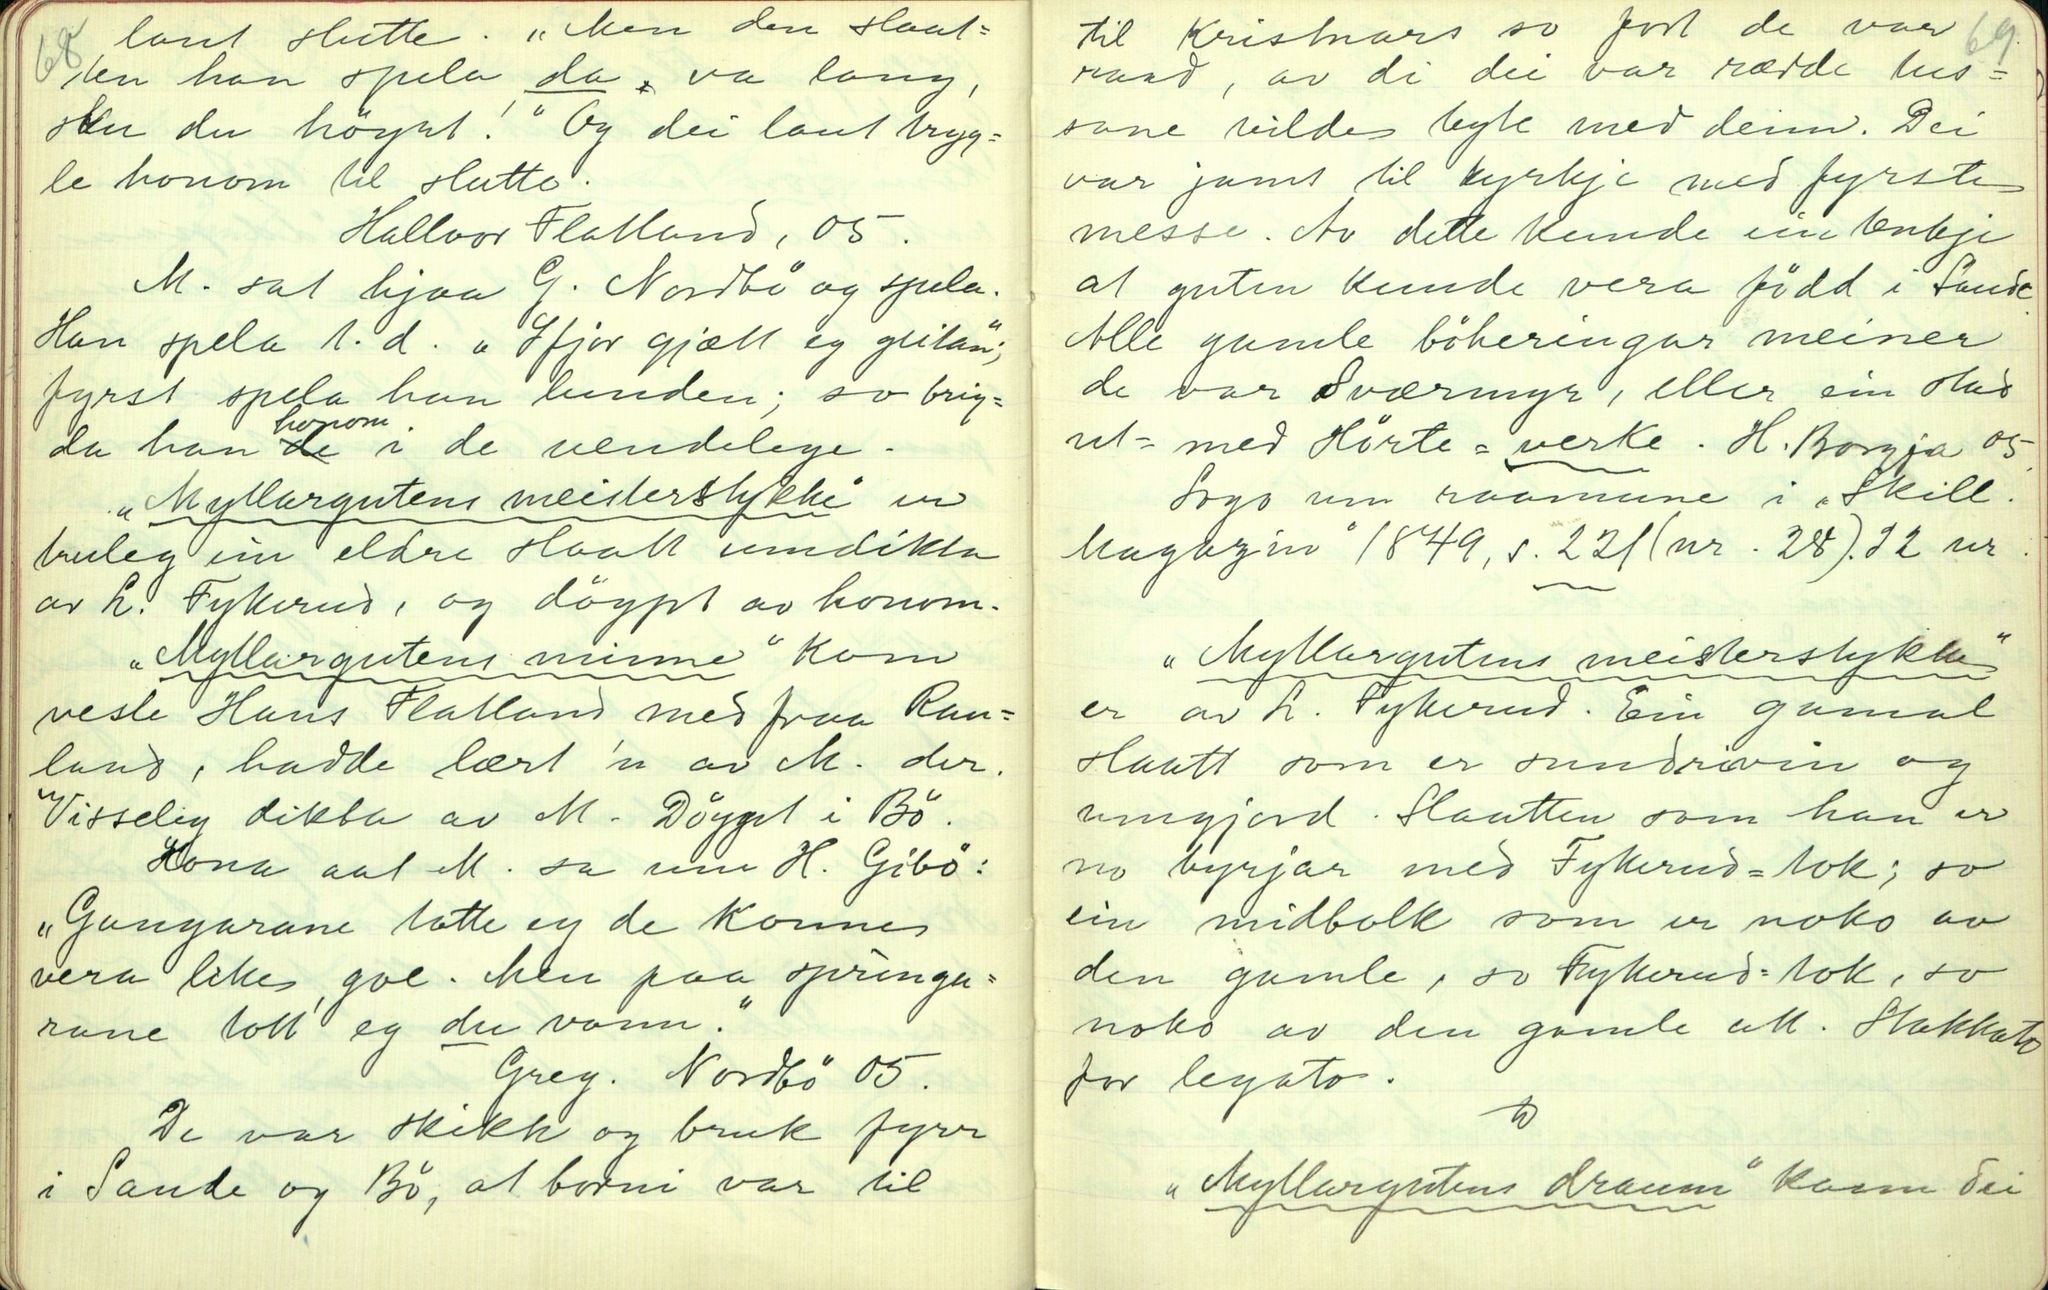 68
laut slutte. „Men den slaat-
ten han spela da, va lang,
ska du höyrt!“ Og dei laut tryg-
le honom til slutte.
Hallvor Flatland, 05.
M. sat hjaa G. Nordbö og spela.
Han spela t. d. „Ifjor gjætt eg geitan“;
fyrst spela han lunden; so brig-
da han honom i de uendelege.
„Myllargutens meisterstykke“ er
truleg ein eldre slaatt umdikta
av L. Fykerud, og döypt av honom.
„Myllargutens minne“ kom
vesle Hans Flatland med fraa Rau-
land, hadde lært 'n av M. der.
Visseleg dikta av M. Döypt i Bö.
Kona aat M. sa um H. Gibö:
„Gangarane totte eg de konne
vera like goe. Men paa springa-
rane tott eg du vann.“
Greg. Nordbö 05.
De var skikk og bruk fyrr
i Sande og Bö, at borni var til
69
til Kristnars so fort de var
raad, av di dei var rædde tus-
sane vilde byte med deim. Dei
var jamt til kyrkje med fyrste
messe. Av dette kunde ein tenkje
at guten kunde vera född i Sande
Alle gamle böheringar meiner
de var Sværmyr, eller ein stad
ut- med Hörte-verke. H. Borgja 05.
Sogo um raamune i „Skill.
Magazin“ 1849, s. 221 (nr. 28). 32 nr.
„Myllargutens meisterstykke“
er av L. Fykerud. Ein gamal
slaatt som er sundriven og
umgjord. Slaatten som han er
no byrjar med Fykerud-tok; so
ein midbolk som er noko av
den gamle, so Fykerud-tok, so
noko av den gamle att. Stakkato
for legato.
„Myllargutens draum“ kaam dei